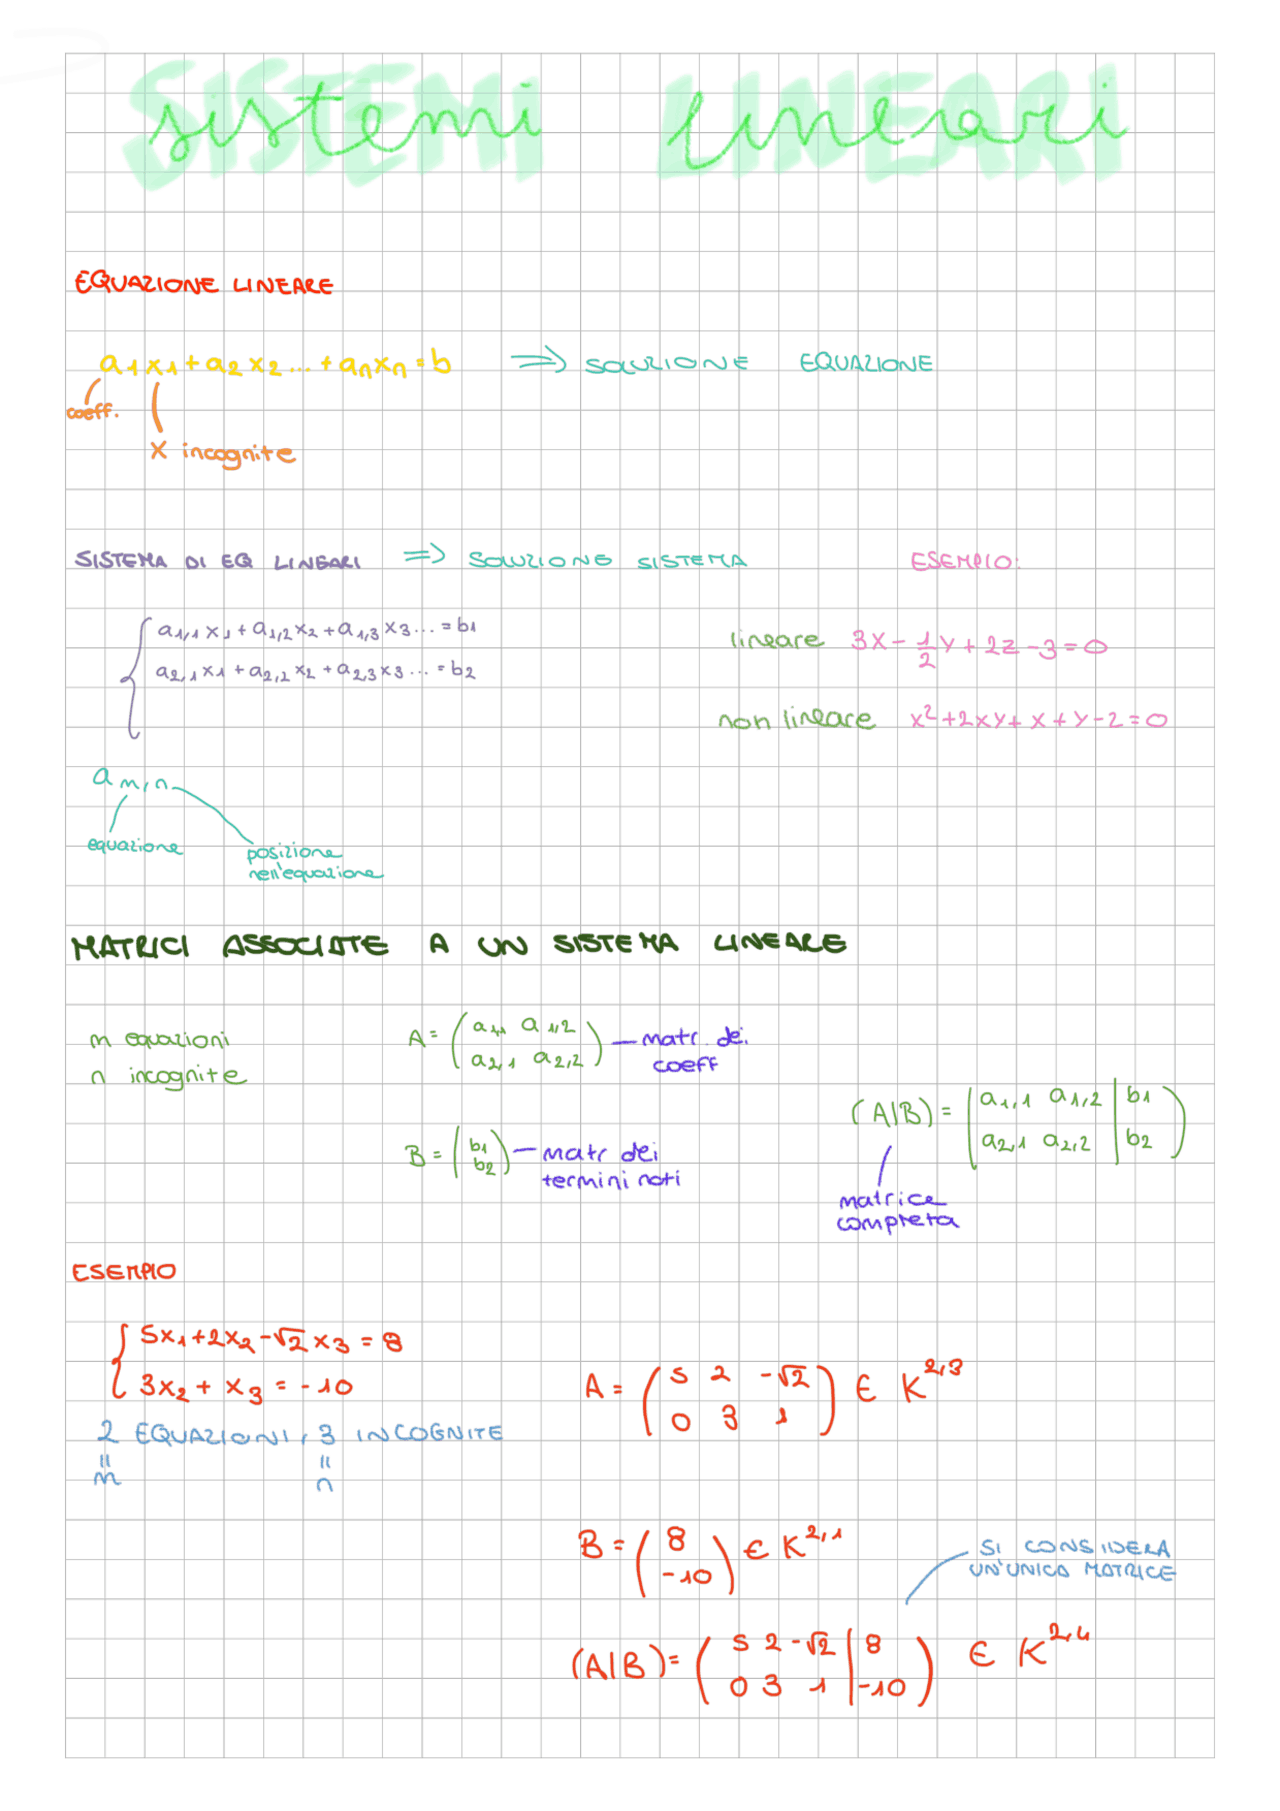 sistemi lineari
EQUAZIONE LINEARE
a₁x₁ + a₂x₂ ... + aₙxₙ = b ⇒ SOLUZIONE EQUAZIONE
coeff.
x incognite
SISTEMA DI EQ LINEARI ⇒ SOLUZIONE SISTEMA ESEMPIO:
{ a₁,₁ x₁ + a₁,₂ x₂ + a₁,₃ x₃ ... = b₁
a₂,₁ x₁ + a₂,₂ x₂ + a₂,₃ x₃ ... = b₂
lineare 3x - 1/2 y + 2z - 3 = 0
non lineare x² + 2xy + x + y - 2 = 0
a m,n
equazione
posizione
nell'equazione
MATRICI ASSOCIATE A UN SISTEMA LINEARE
m equazioni
n incognite
A = ( a₁,₁ a₁,₂
a₂,₁ a₂,₂ ) — matr. dei
coeff
B = ( b₁
b₂ ) — matr dei
termini noti
(A|B) = ( a₁,₁ a₁,₂ | b₁
a₂,₁ a₂,₂ | b₂ )
matrice
completa
ESEMPIO
{ 5x₁ + 2x₂ - √2 x₃ = 8
3x₂ + x₃ = -10
2 EQUAZIONI, 3 INCOGNITE
= =
m n
A = ( 5 2 -√2
0 3 1 ) ∈ K²,³
B = ( 8
-10 ) ∈ K²,¹
SI CONSIDERA
UN'UNICA MATRICE
(A|B) = ( 5 2 -√2 | 8
0 3 1 | -10 ) ∈ K²,⁴